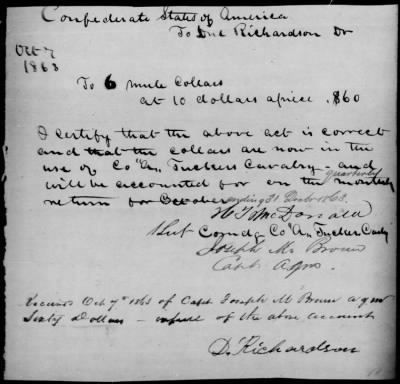 Confederate States of America
To Dnl Richardson Dr
Oct 7
1863
To 6 mule Collars
at 10 dollars apiece . $60
I certify that the above act is correct
and that the collars are now in the
use of Co "A" Tuckers Cavalry - and
will be accounted for on the monthly quarterly
return for October ending 31 Decbr 1863.
McDonald
1 Lut Comdg Co "A" Tuckers Cavly
Joseph M Brown
Capt. Aqm.
Received Oct 7th 1863 of Capt Joseph M Brown a q m
Sixty Dollars - of the above account
D. Richardson